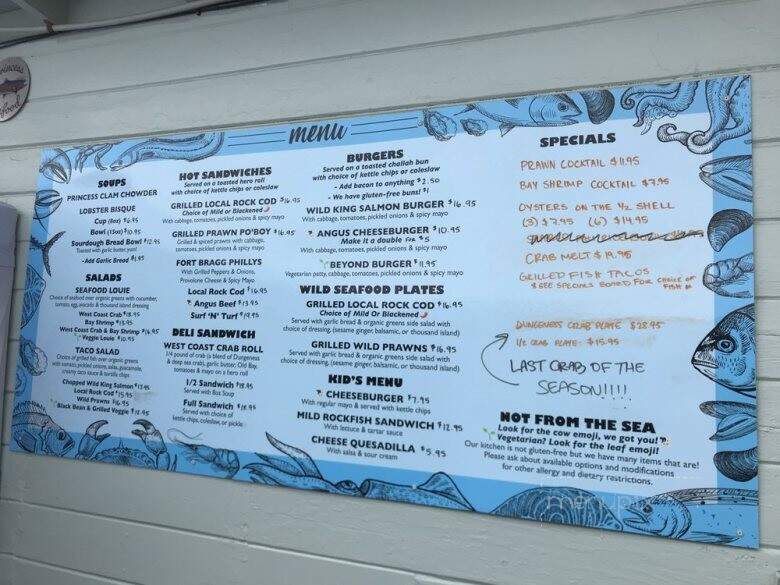 menu
SOUPS
PRINCESS CLAM CHOWDER
LOBSTER BISQUE
Cup (8oz) $6.95
Bowl (15oz) $10.95
Sourdough Bread Bowl $12.95
Toasted with garlic butter, yum!
- Add Garlic Bread $1.95
SALADS
SEAFOOD LOUIE
Choice of seafood over organic greens with cucumber,
tomato, egg, avocado & thousand island dressing
West Coast Crab $18.95
Bay Shrimp $13.95
West Coast Crab & Bay Shrimp $16.95
Veggie Louie $10.95
TACO SALAD
Choice of grilled fish over organic greens
with tomato, pickled onions, salsa, guacamole,
creamy taco sauce & tortilla chips
Chopped Wild King Salmon $17.95
Local Rock Cod $15.95
Wild Prawns $16.95
Black Bean & Grilled Veggie $12.95
HOT SANDWICHES
Served on a toasted hero roll
with choice of kettle chips or coleslaw
GRILLED LOCAL ROCK COD $16.95
Choice of Mild or Blackened
With cabbage, tomatoes, pickled onions & spicy mayo
GRILLED PRAWN PO'BOY $16.95
Grilled & spiced prawns with cabbage,
tomatoes, pickled onions & spicy mayo
FORT BRAGG PHILLYS
With Grilled Peppers & Onions,
Provolone Cheese & Spicy Mayo
Local Rock Cod $16.95
Angus Beef $13.95
Surf 'N' Turf $19.95
DELI SANDWICH
WEST COAST CRAB ROLL
1/4 pound of crab (a blend of Dungeness
& deep sea crab), garlic butter, Old Bay,
tomatoes & mayo on a hero roll
1/2 Sandwich $18.95
Served with 8oz Soup
Full Sandwich $18.95
Served with choice of
kettle chips, coleslaw, or pickle
BURGERS
Served on a toasted challah bun
with choice of kettle chips or coleslaw
- Add bacon to anything $2.50
- We have gluten-free buns! $1
WILD KING SALMON BURGER $16.95
With cabbage, tomatoes, pickled onions & spicy mayo
ANGUS CHEESEBURGER $10.95
Make it a double FOR $5
With cabbage, tomatoes, pickled onions & spicy mayo
BEYOND BURGER $11.95
Vegetarian patty, cabbage, tomatoes, pickled onions & spicy mayo
WILD SEAFOOD PLATES
GRILLED LOCAL ROCK COD $16.95
Choice of Mild Or Blackened
Served with garlic bread & organic greens side salad with
choice of dressing, (sesame ginger, balsamic, or thousand island)
GRILLED WILD PRAWNS $16.95
Served with garlic bread & organic greens side salad with
choice of dressing, (sesame ginger, balsamic, or thousand island)
KID'S MENU
CHEESEBURGER $7.95
With regular mayo & served with kettle chips
MILD ROCKFISH SANDWICH $12.95
With lettuce & tartar sauce
CHEESE QUESADILLA $5.95
With salsa & sour cream
SPECIALS
PRAWN COCKTAIL $11.95
BAY SHRIMP COCKTAIL $7.95
OYSTERS ON THE 1/2 SHELL
(3) $7.95 (6) $14.95
CRAB MELT $19.95
GRILLED FISH TACOS
$ SEE SPECIALS BOARD FOR CHOICE OF FISH
DUNGENESS CRAB PLATE $28.95
1/2 CRAB PLATE $15.95
LAST CRAB OF THE
SEASON!!!!
NOT FROM THE SEA
Look for the cow emoji, we got you!
Vegetarian? Look for the leaf emoji!
Our kitchen is not gluten-free but we have many items that are!
Please ask about available options and modifications
for other allergy and dietary restrictions.